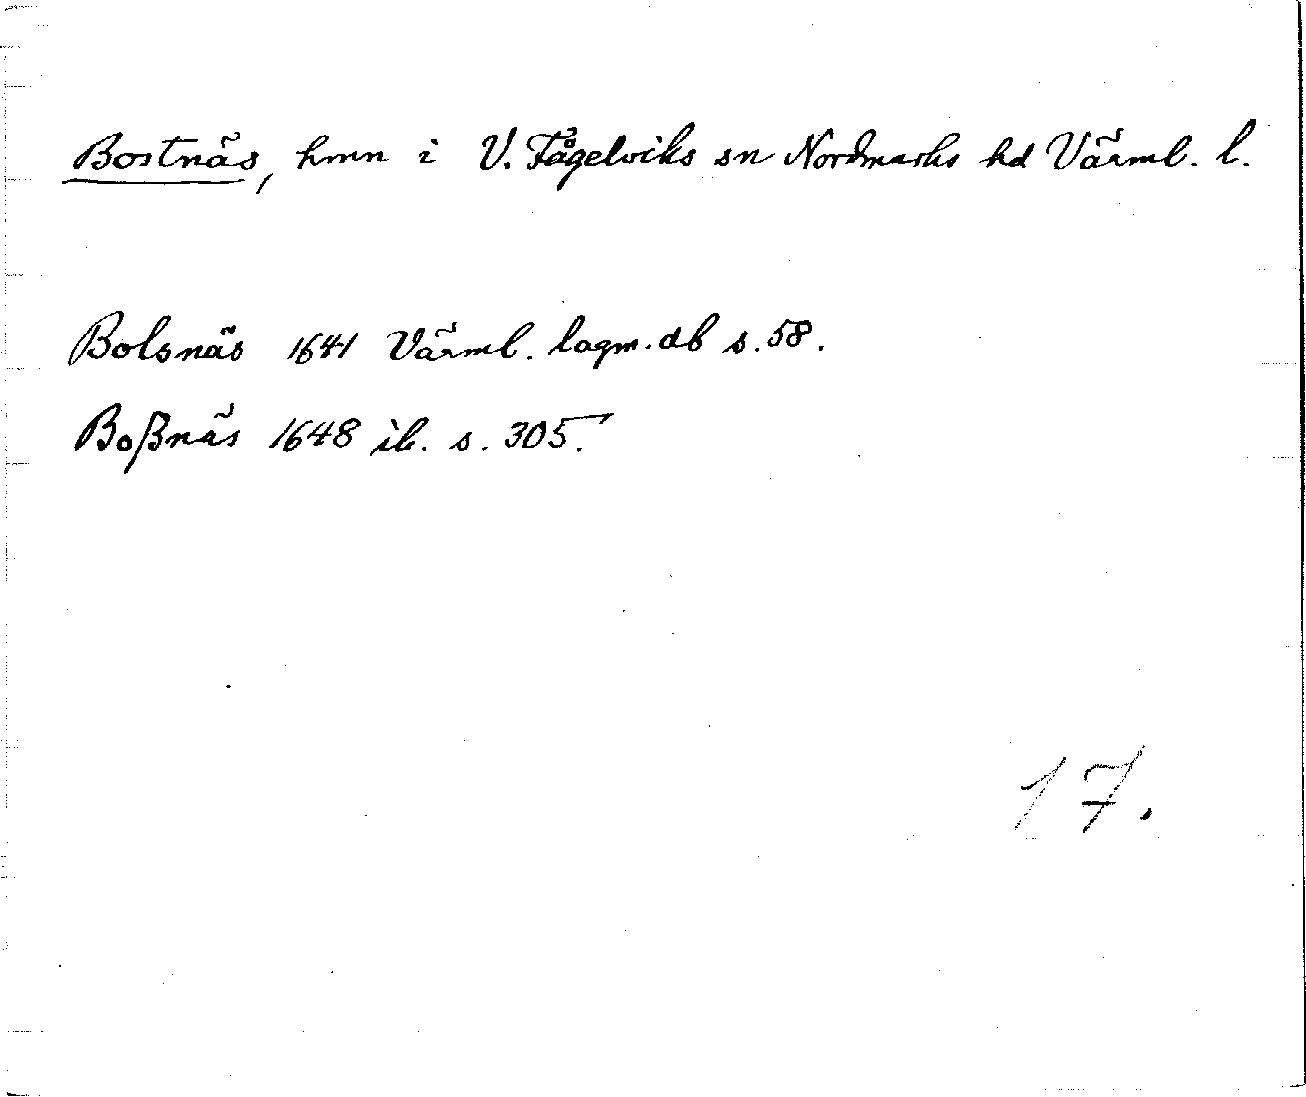 Bostnäs, hmn i V. Fågelviks sn Nordmarks hd Värml. l.
Bolsnäs 1641 Värml. lagm. db s. 58.
Boßnäs 1648 ib. s. 305.
17.